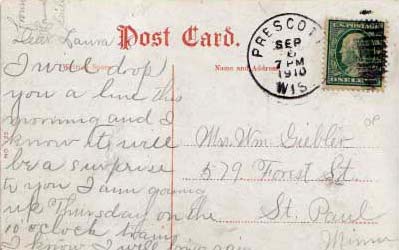 Dear Laura
Post Card.
I will drop
you a line this
morning and I
know it will
be a surprise
to you I am going
up Thursday on the
10 o'clock train
I know I will
Name and Address
PRESCOTT
SEP
6
7 PM
1910
WIS.
U.S. POSTAGE
ONE CENT
Mrs. Wm. Giebler
579 Forest St.
St. Paul
Minn